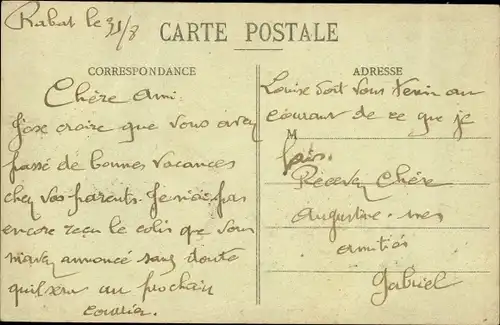 Rabat le 31/8
CARTE POSTALE
CORRESPONDANCE
Chère Ami.
J'ose croire que vous avez
passé de bonnes vacances
chez vos parents. Je n'ai pas
encore reçu le colis que vous
m'avez annoncé sans doute
qu'il sera au prochain
courrier.
ADRESSE
Louise doit vous tenir au
courant de ce que je
M
fais.
Recevez Chère
Augustine mes
amitiés
Gabriel